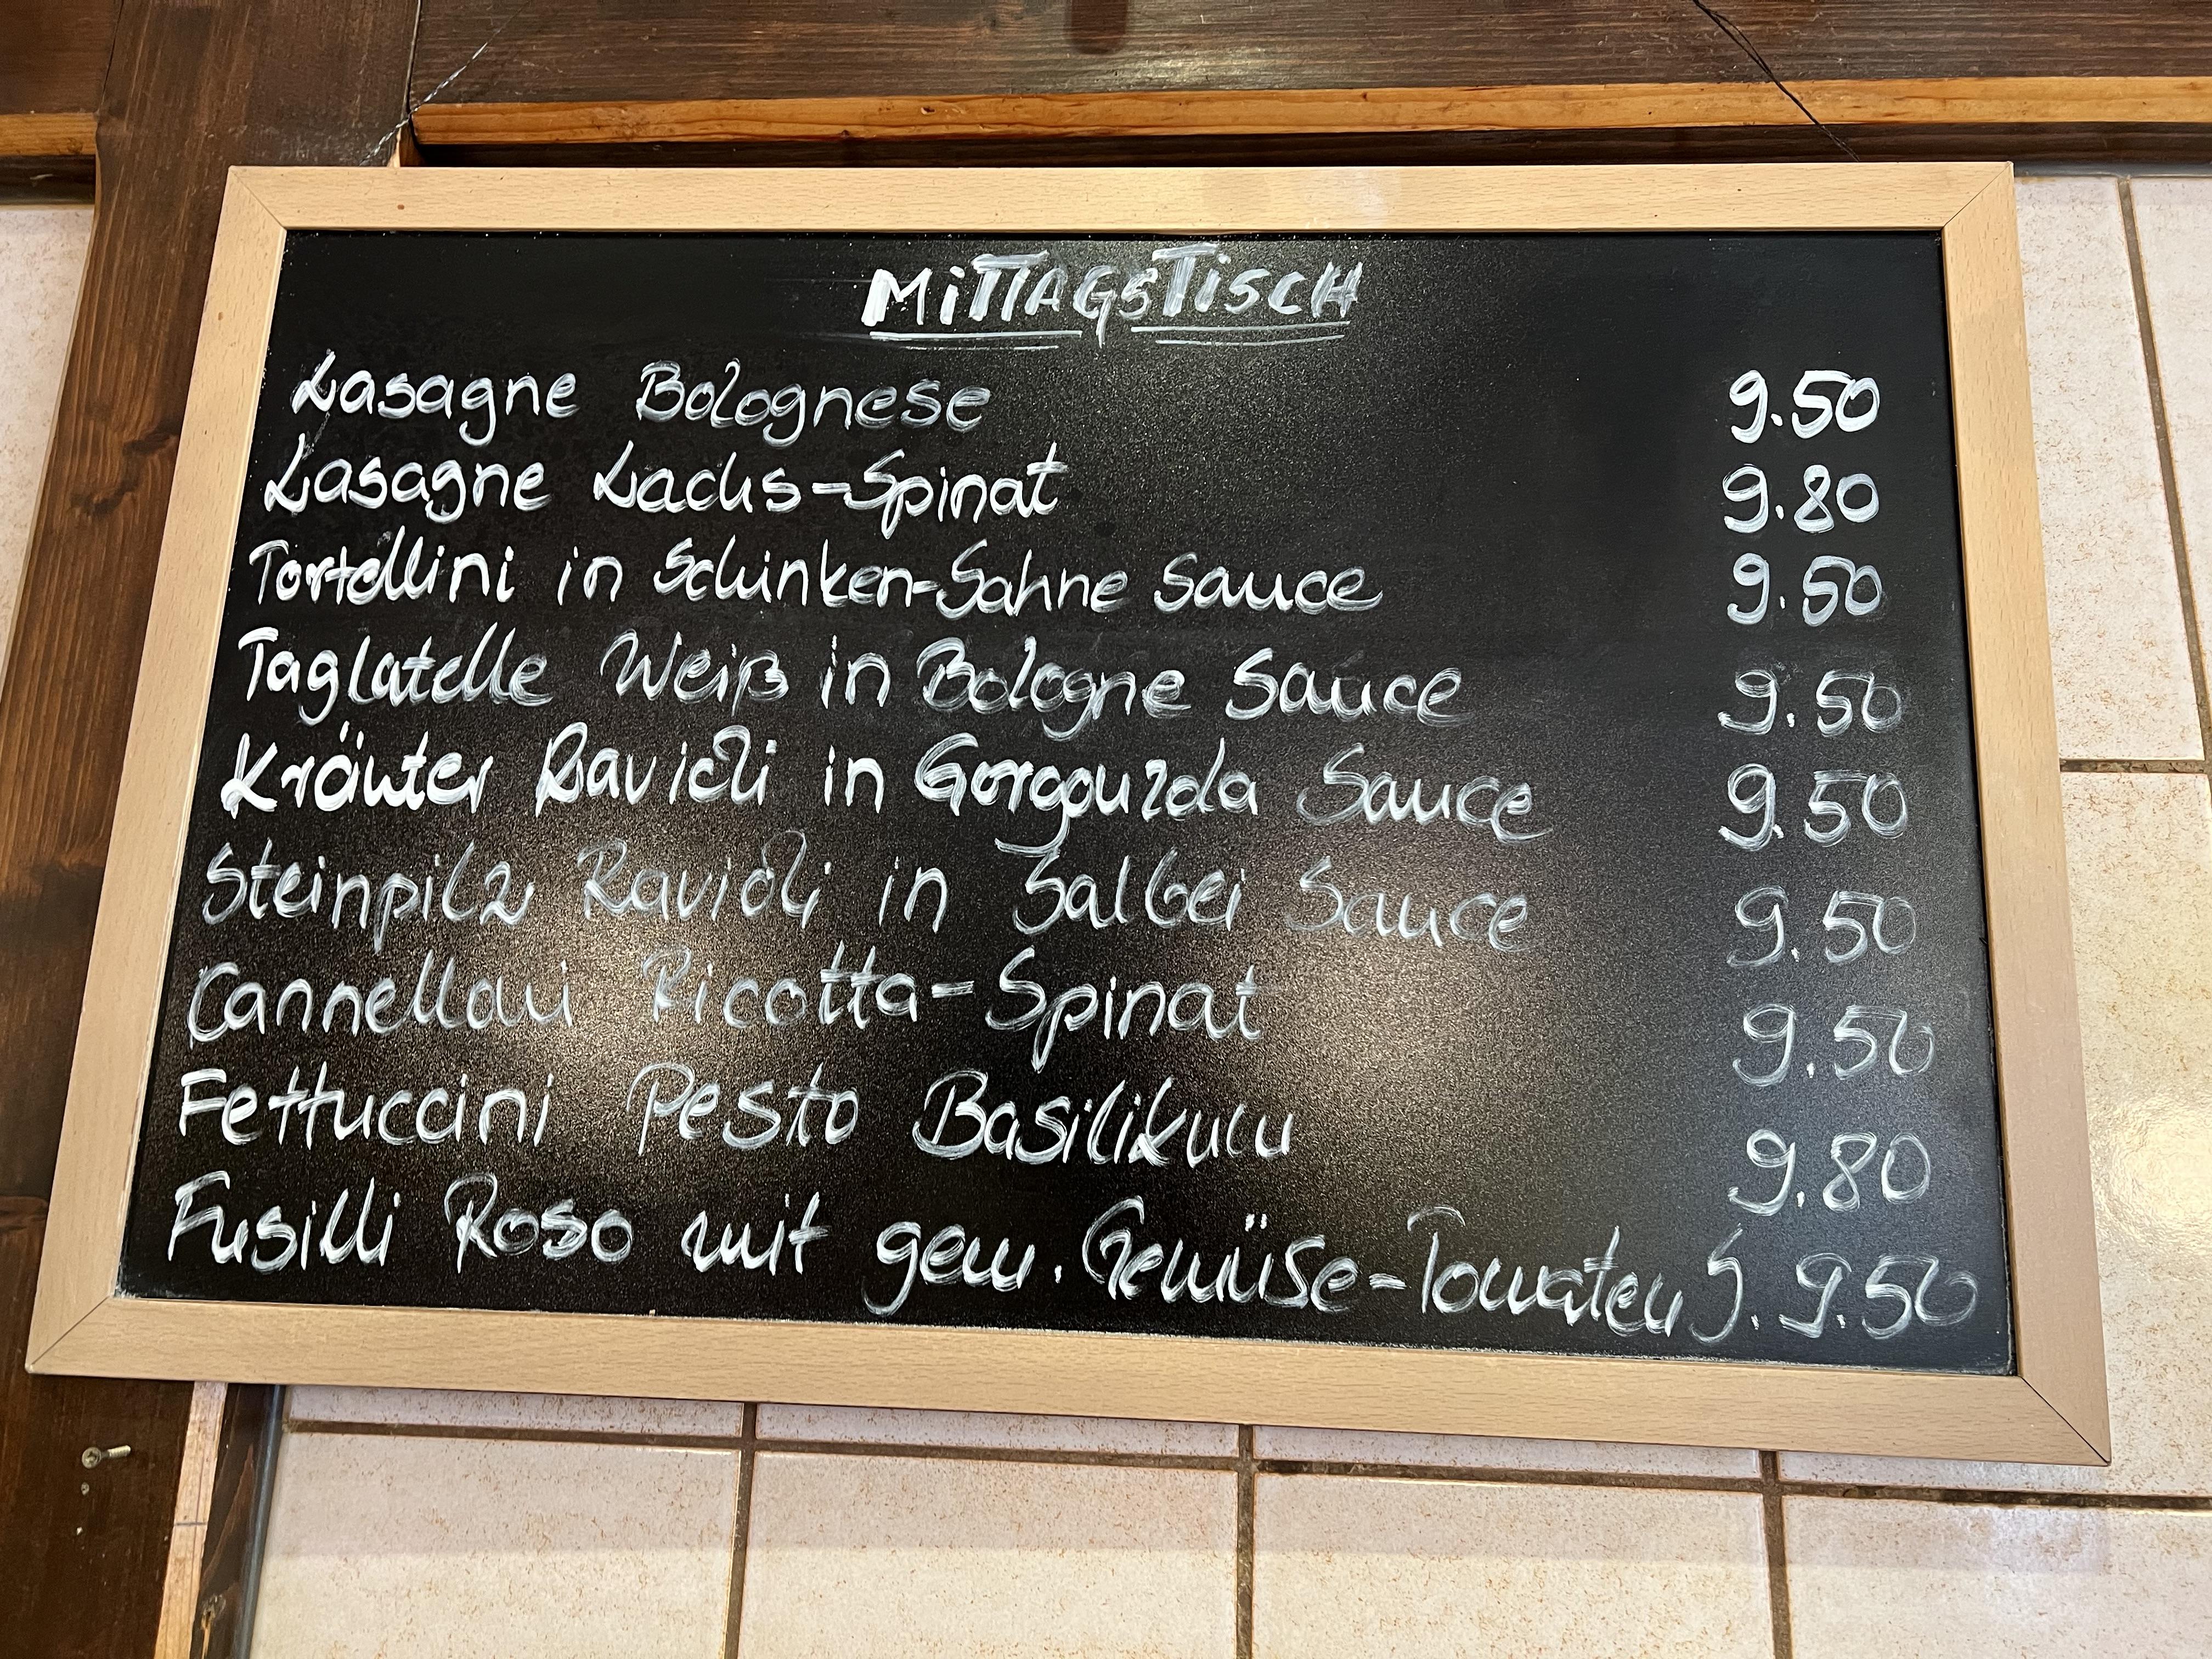 MiTTAGSTiSCH
Lasagne Bolognese 9.50
Lasagne Lachs-Spinat 9.80
Tortellini in Schinken-Sahne Sauce 9.50
Taglatelle Weiß in Bologne Sauce 9.50
Kräuter Ravioli in Gorgonzola Sauce 9.50
Steinpilz Ravioli in Salbei Sauce 9.50
Cannelloni Ricotta-Spinat 9.50
Fettuccini Pesto Basilikum 9.80
Fusilli Roso mit gem. Gemüse-Tomaten S. 9.50